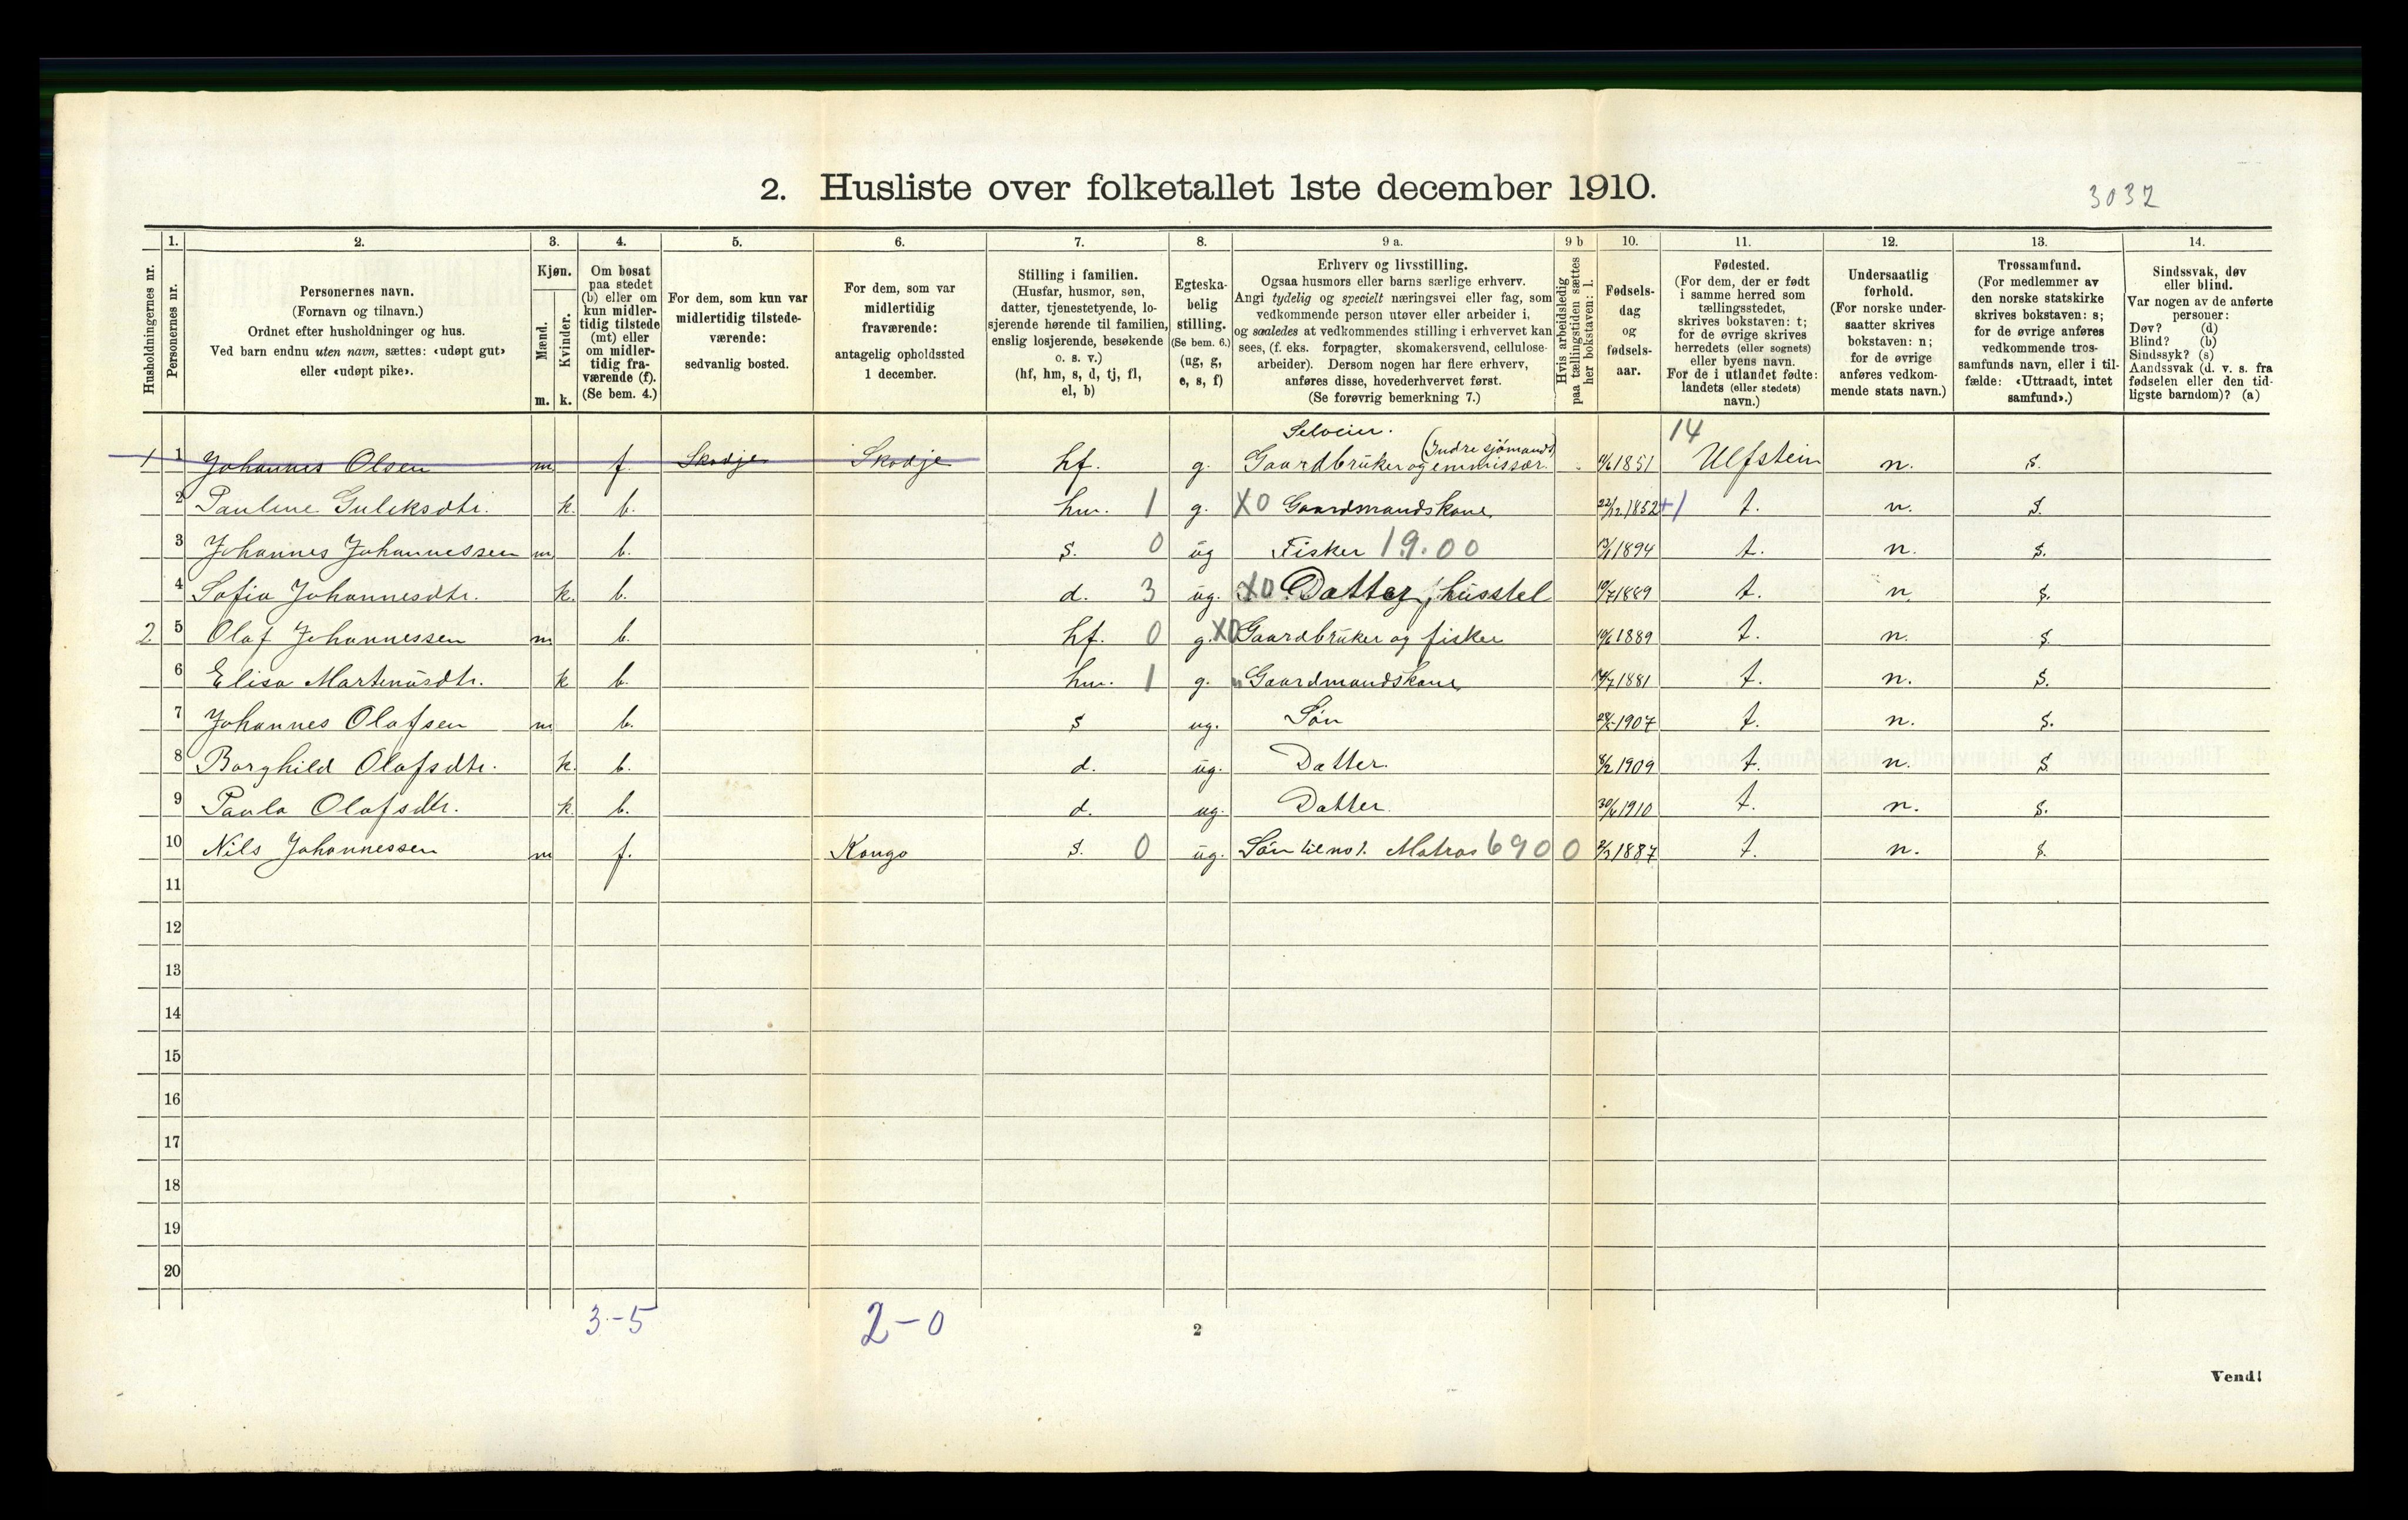 2. Husliste over folketallet 1ste december 1910.
3032
Husholdningernes nr.
1. Personernes nr.
2. Personernes navn.
(Fornavn og tilnavn.)
Ordnet efter husholdninger og hus.
Ved barn endnu uten navn, sættes: «udøpt gut»
eller «udøpt pike».
3. Kjøn.
Mænd. m.
Kvinder. k.
4. Om bosat
paa stedet
(b) eller om
kun midler-
tidig tilstede
(mt) eller
om midler-
tidig fra-
værende (f).
(Se bem. 4.)
5. For dem, som kun var
midlertidig tilstede-
værende:
sedvanlig bosted.
6. For dem, som var
midlertidig
fraværende:
antagelig opholdssted
1 december.
7. Stilling i familien.
(Husfar, husmor, søn,
datter, tjenestetyende, lo-
sjerende hørende til familien,
enslig losjerende, besøkende
o. s. v.)
(hf, hm, s, d, tj, fl,
el, b)
8. Egteska-
belig
stilling.
(Se bem. 6.)
(ug, g,
e, s, f)
9 a. Erhverv og livsstilling.
Ogsaa husmors eller barns særlige erhverv.
Angi tydelig og specielt næringsvei eller fag, som
vedkommende person utøver eller arbeider i,
og saaledes at vedkommendes stilling i erhvervet kan
sees, (f. eks. forpagter, skomakersvend, cellulose-
arbeider). Dersom nogen har flere erhverv,
anføres disse, hovederhvervet først.
(Se forøvrig bemerkning 7.)
9 b Hvis arbeidsledig
paa tællingstiden sættes
her bokstaven: l.
10. Fødsels-
dag
og
fødsels-
aar.
11. Fødested.
(For dem, der er født
i samme herred som
tællingsstedet,
skrives bokstaven: t;
for de øvrige skrives
herredets (eller sognets)
eller byens navn.
For de i utlandet fødte:
landets (eller stedets)
navn.)
12. Undersaatlig
forhold.
(For norske under-
saatter skrives
bokstaven: n;
for de øvrige
anføres vedkom-
mende stats navn.)
13. Trossamfund.
(For medlemmer av
den norske statskirke
skrives bokstaven: s;
for de øvrige anføres
vedkommende tros-
samfunds navn, eller i til-
fælde: «Uttraadt, intet
samfund».)
14. Sindssvak, døv
eller blind.
Var nogen av de anførte
personer:
Døv? (d)
Blind? (b)
Sindssyk? (s)
Aandssvak (d. v. s. fra
fødselen eller den tid-
ligste barndom)? (a)
Selveier. 14
1 1 Johannes Olsen m f. Skodje Skodje hf. g. Gaardbruker og emmissær. (Indre sjømands) 1851 Ulfstein n. s.
2 Pauline Guleksdtr. k. b. hm. 1 g. X0 Gaardmandskone 22/12 1852 +1 t. n. s.
3 Johannes Johannessen m b. s. 0 ug Fisker 19.00 1894 t. n. s.
4 Sofia Johannesdtr. k. b. d. 3 ug. X0 Datter, husstel 10/7 1889 t. n. s.
2 5 Olaf Johannessen m b. hf. 0 g. X0 Gaardbruker og fisker 1889 t. n. s.
6 Elisa Martinusdtr. k b. hm. 1 g. Gaardmandskone 1881 t. n. s.
7 Johannes Olafsen m b. s ug. Søn 1907 t. n. s.
8 Borghild Olafsdtr. k. b. d. ug. Datter. 1909 t. n. s
9 Paula Olafsdtr. k. b. d. ug. Datter. 1910 t. n. s.
10 Nils Johannessen m f. Kongo s. 0 ug. Søn til no 1. Matros 690 0 1887 t. n. s.
11
12
13
14
15
16
17
18
19
20
3-5
2-0
2
Vend!